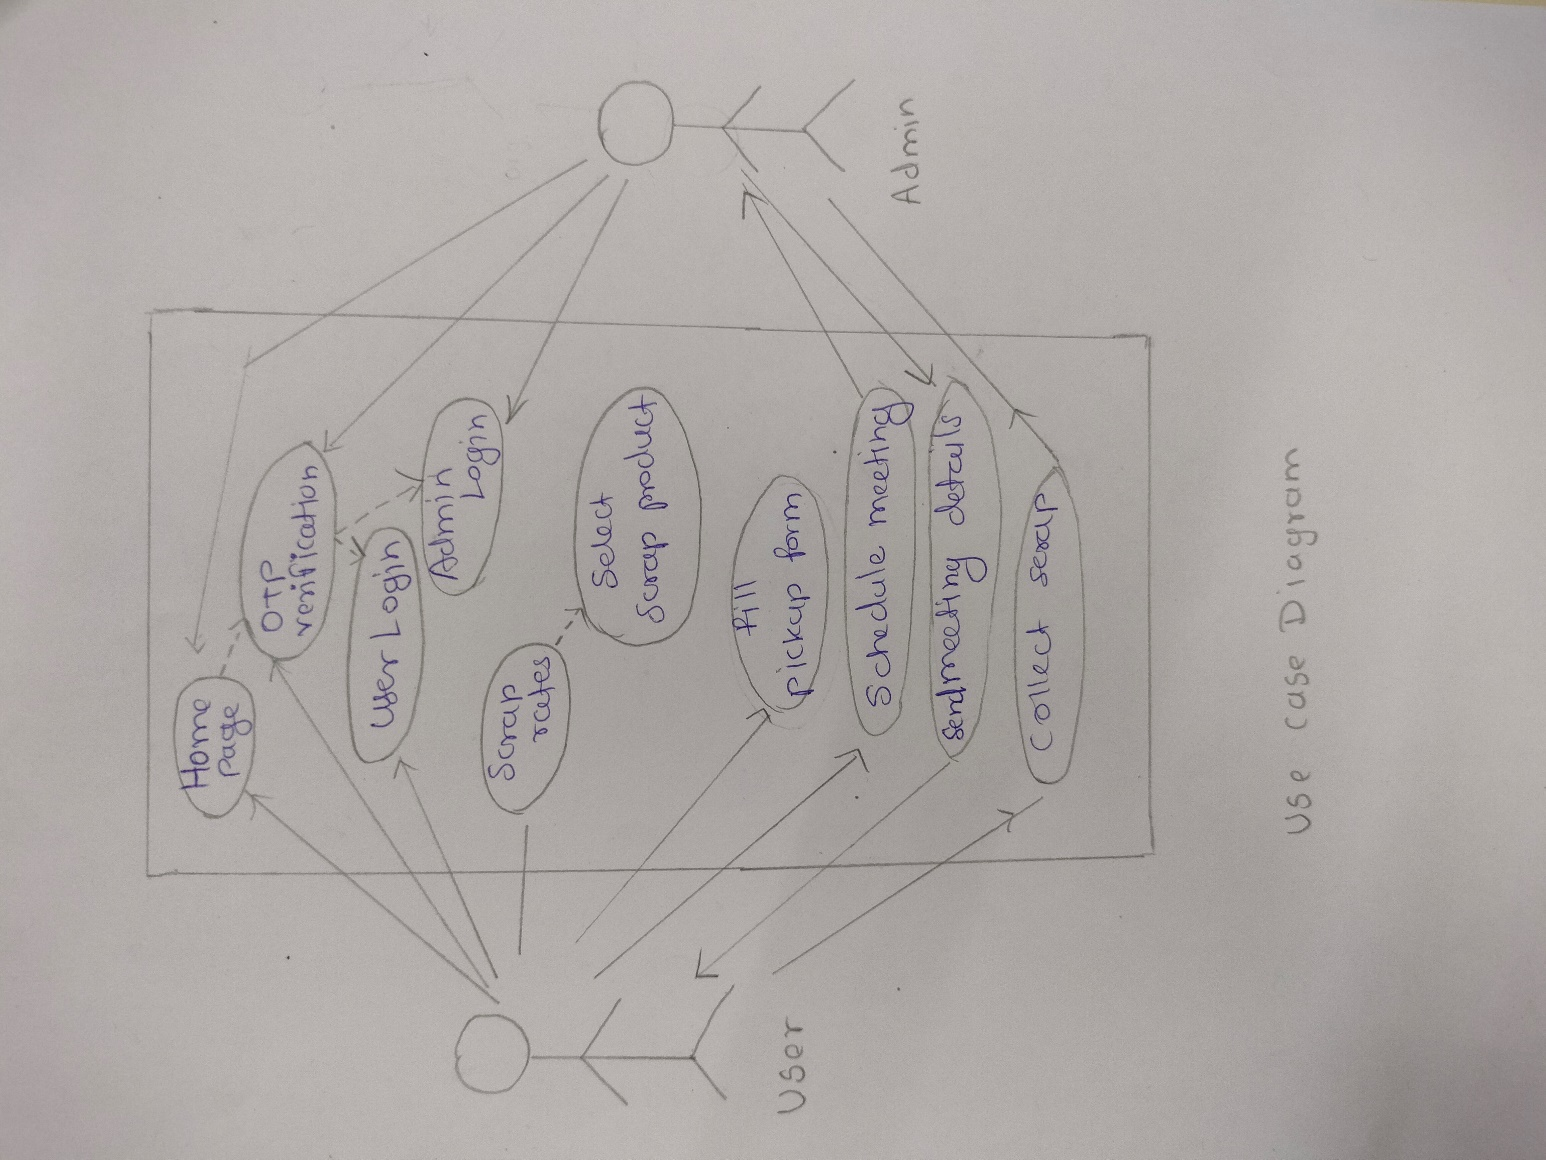 Home
Page
OTP
verification
User Login
Admin
Login
Scrap
rates
Select
Scrap product
Fill
pickup form
Schedule meeting
send meeting details
Collect scrap
User
Admin
Use Case Diagram